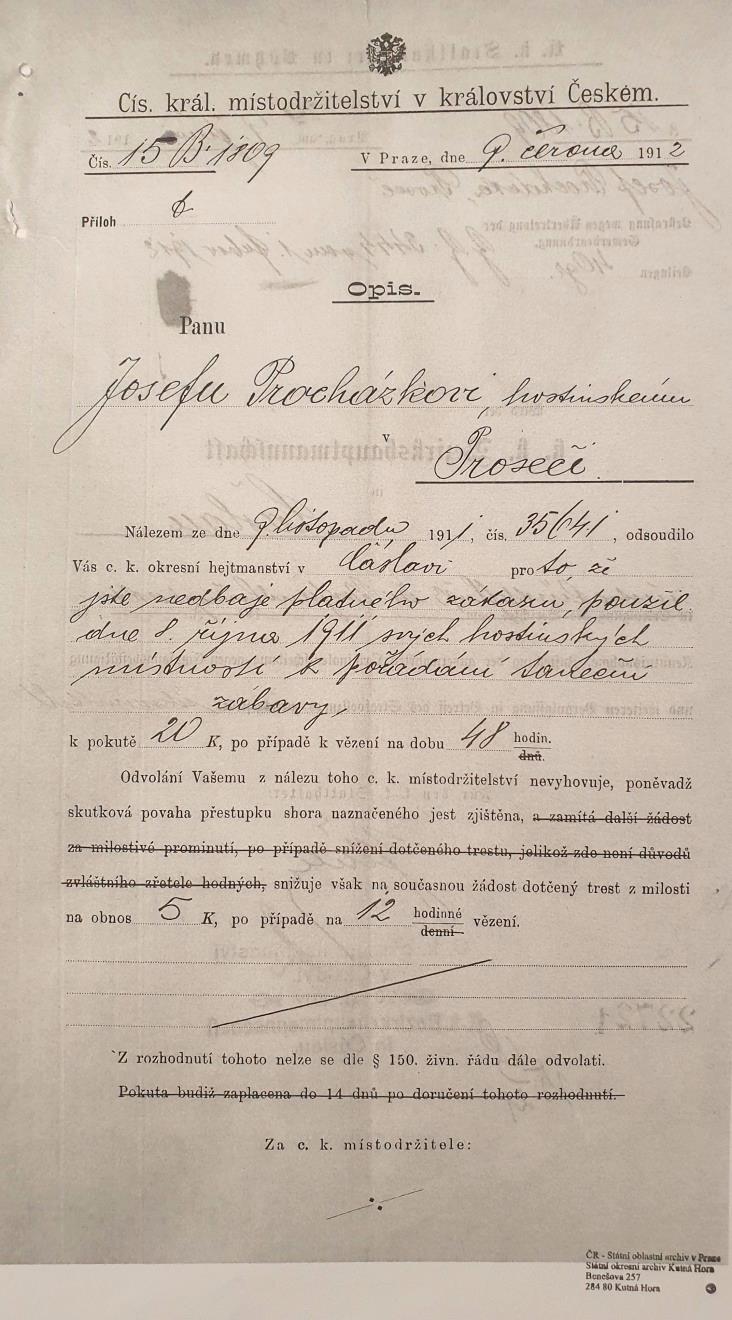 Cís. král. místodržitelství v království Českém.
Čís. 15 B. 1809
V Praze, dne 9. června 1912
Příloh
Opis.
Panu
Josefu Procházkovi, hostinskému
v
Proseči.
Nálezem ze dne 9. listopadu 1911, čís. 35641, odsoudilo
Vás c. k. okresní hejtmanství v Čáslavi proto, že
jste nedbaje platného zákazu, použil
dne 8. října 1911 svých hostinských
místností k pořádání taneční
zábavy,
k pokutě 20 K, po případě k vězení na dobu 48 hodin.
dnů.
Odvolání Vašemu z nálezu toho c. k. místodržitelství nevyhovuje, poněvadž
skutková povaha přestupku shora naznačeného jest zjištěna, a zamítá další žádost
za milostivé prominutí, po případě snížení dotčeného trestu, jelikož zde není důvodů
zvláštního zřetele hodných, snižuje však na současnou žádost dotčený trest z milosti
na obnos 5 K, po případě na 12 hodinné
denní
vězení.
Z rozhodnutí tohoto nelze se dle § 150. živn. řádu dále odvolati.
Pokuta budiž zaplacena do 14 dnů po doručení tohoto rozhodnutí.
Za c. k. místodržitele:
ČR - Státní oblastní archiv v Praze
Státní okresní archiv Kutná Hora
Benešova 257
284 80 Kutná Hora